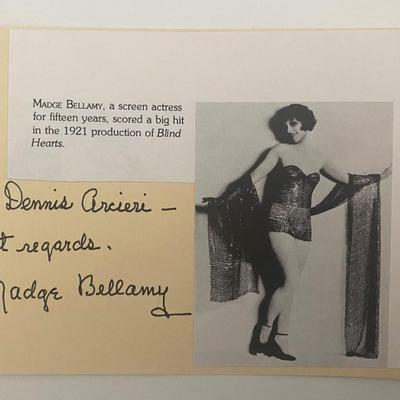 MADGE BELLAMY, a screen actress
for fifteen years, scored a big hit
in the 1921 production of Blind
Hearts.
Dennis Arcieri —
t regards.
Madge Bellamy